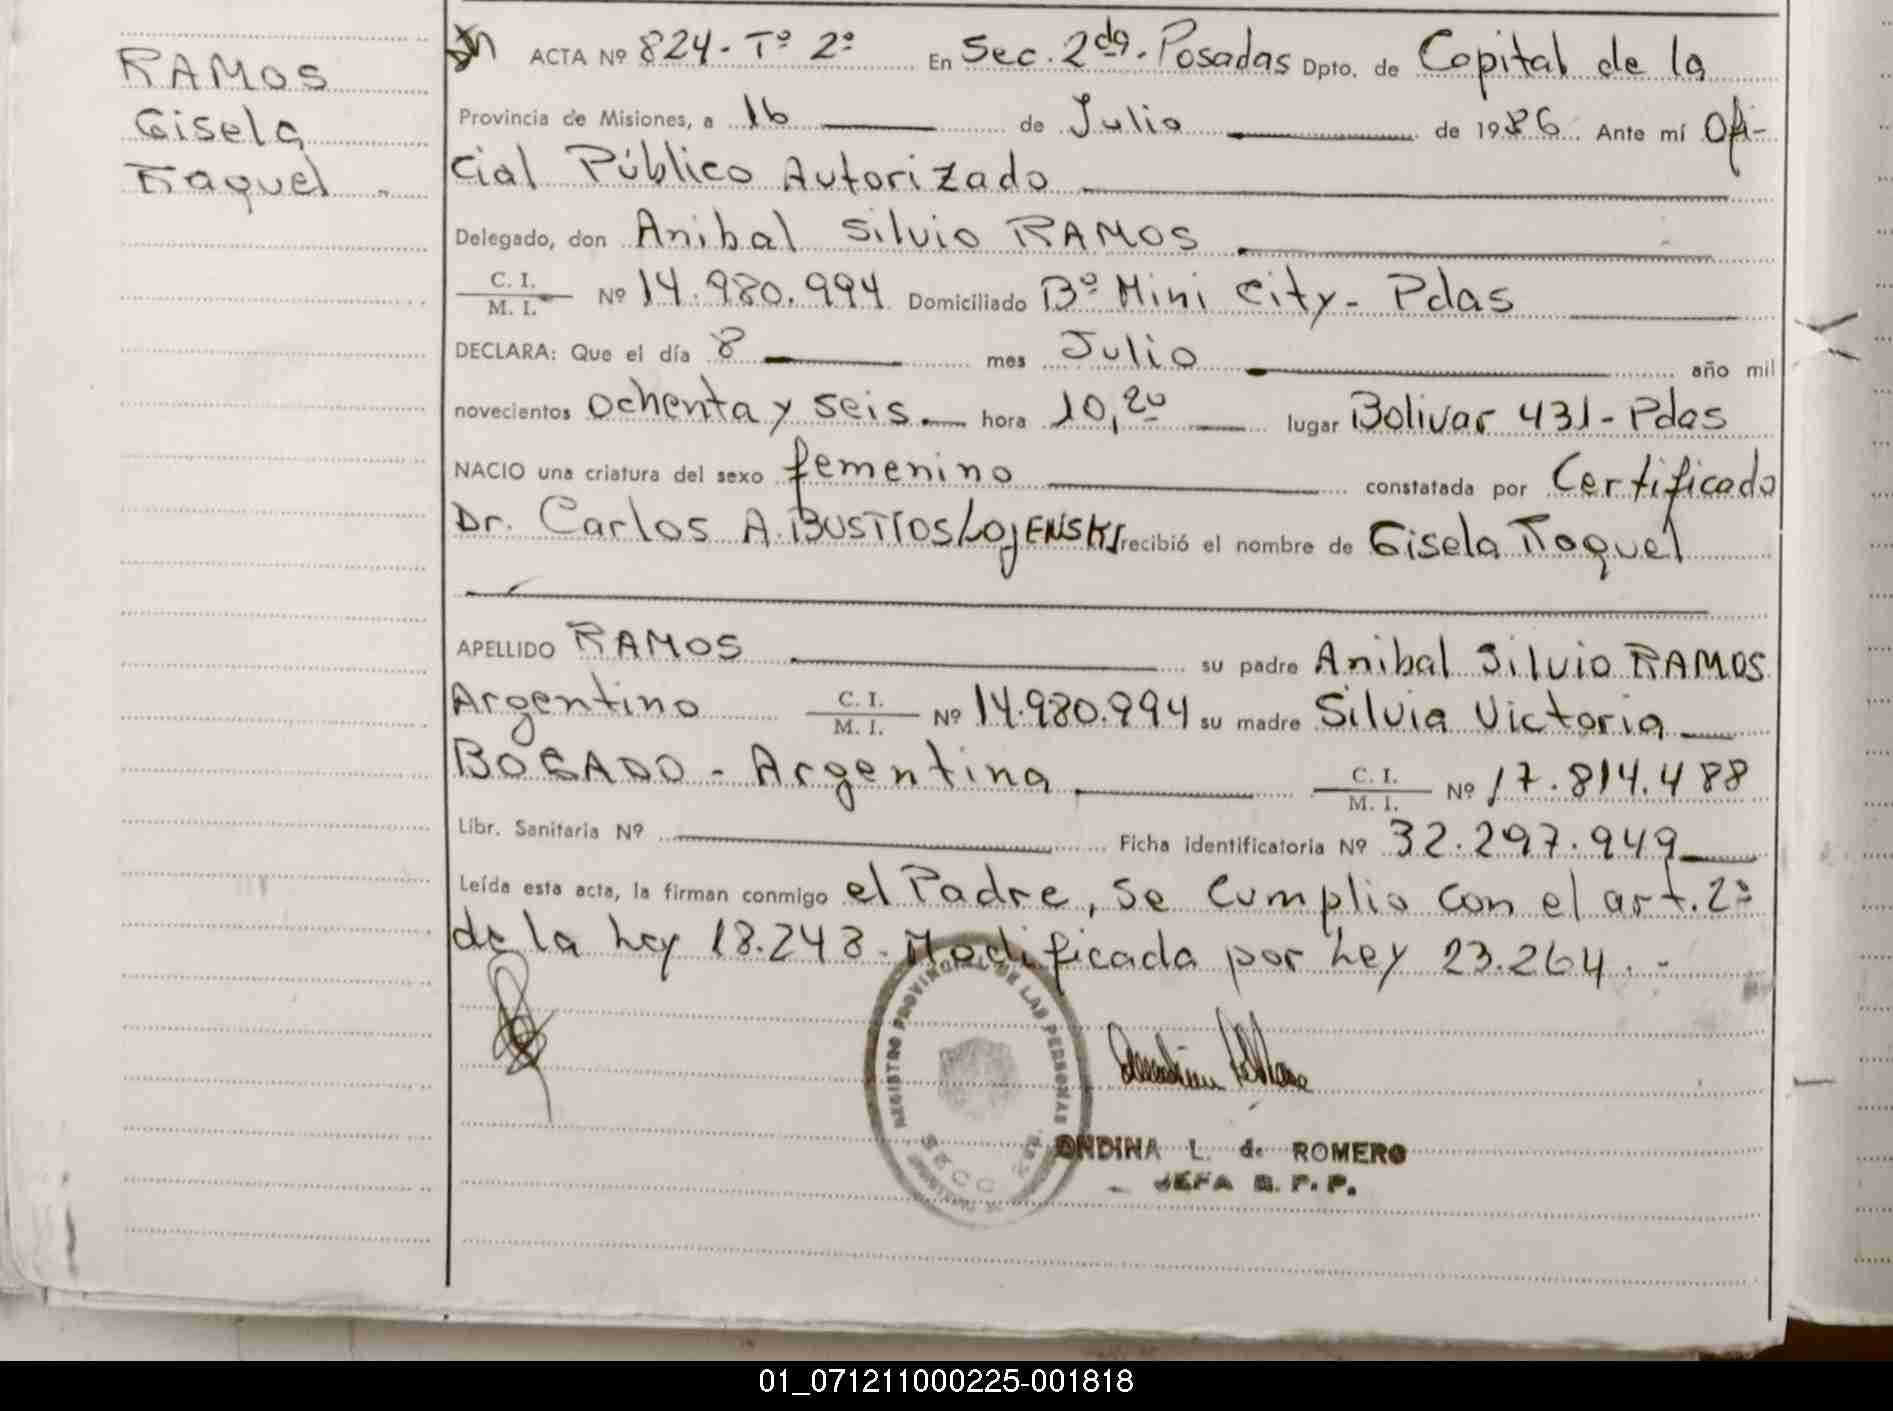 RAMOS
Gisela
Raquel -
ACTA Nº 824 - Tº 2º En Sec. 2da. Posadas Dpto. de Capital de la
Provincia de Misiones, a 16 de Julio de 1986 Ante mí Ofi-
cial Público Autorizado
Delegado, don Anibal Silvio RAMOS
C. I.
M. I. Nº 14.980.994 Domiciliado Bº Mini City - Pdas
DECLARA: Que el día 8 mes Julio año mil
novecientos ochenta y seis. hora 10,20 lugar Bolivar 431 - Pdas
NACIO una criatura del sexo femenino constatada por Certificado
Dr. Carlos A. recibió el nombre de Gisela Raquel
APELLIDO RAMOS su padre Anibal Silvio RAMOS
Argentino C. I.
M. I. Nº 14.980.994 su madre Silvia Victoria
BOGADO - Argentina C. I.
M. I. Nº 17.814.488
Libr. Sanitaria Nº Ficha identificatoria Nº 32.297.949
Leída esta acta, la firman conmigo el Padre, se cumplio con el art. 2º
de la Ley 18.248 - Modificada por Ley 23.264. -
REGISTRO PROVINCIAL DE LAS PERSONAS
SECC 2
ONDINA L. de ROMERO
JEFA R. P. P.
01_071211000225-001818